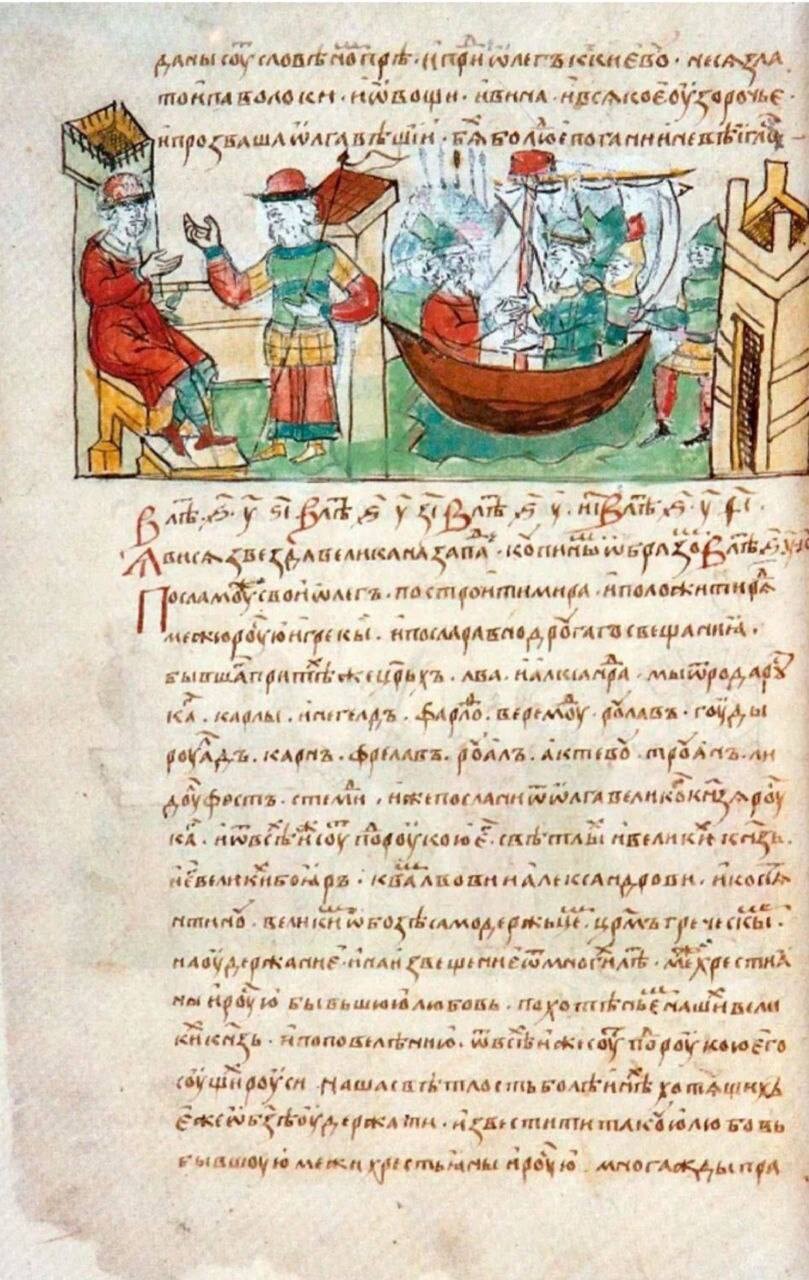 даны соуть словѣномъ прѣ · и приде ѡлегъ к киевоу · неся зла
то и паволоки · и ѡвощи · и вина · и всякое оузорочье ·
и прозваша ѡлга вѣщии · бяхоу бо людие погани и невѣигласи
В лѣто ҂ѕ҃ у҃ ѕ҃і В лѣто ҂ѕ҃ у҃ з҃і В лѣто ҂ѕ҃ у҃ · и҃і В лѣто ҂ѕ҃ у҃ ѳ҃і ·
Явися звезда велика на западе · копиинымъ ѡбразомъ В лѣто ҂ѕ҃ у҃ к҃
Посла моужи свои ѡлегъ · построити мира · и положити рядъ
межю роусью и грекы · и посла равно дроугаго свещания ·
бывшаго при тѣхже царихъ · лва · и александра · мы ѿ рода роус
ка · карлы · инегелдъ · фарлоф · веремоуд · роулавъ · гоуды
роуалдъ · карнъ · фрелавъ · роуалъ · актевоу · троуанъ · ли
доуфостъ · стемид · иже послани ѿ ѡлга великого князя роус
ка · и ѿ всѣх иже соуть под роукою его · свѣтлых и великих князь ·
и его великих бояръ · к вамъ лвови и александрови · и костя
нтиноу · великим ѡ бозѣ самодержьцем · царемъ греческым ·
на оудержание · и на извещение ѿ многих лѣт · межю хрестиа
ны и роусью бывьшюю любовь · похотѣньем наших вели
ких князь · и по повелѣнию · ѿ всѣх иже соуть под роукою его
соущих роуси · наша свѣтлость болѣ инѣх хотящихъ
еже ѡ бозѣ оудержати · и звестити такоую любовь
бывшоую межи хрестьаны и роусью · многажды пра